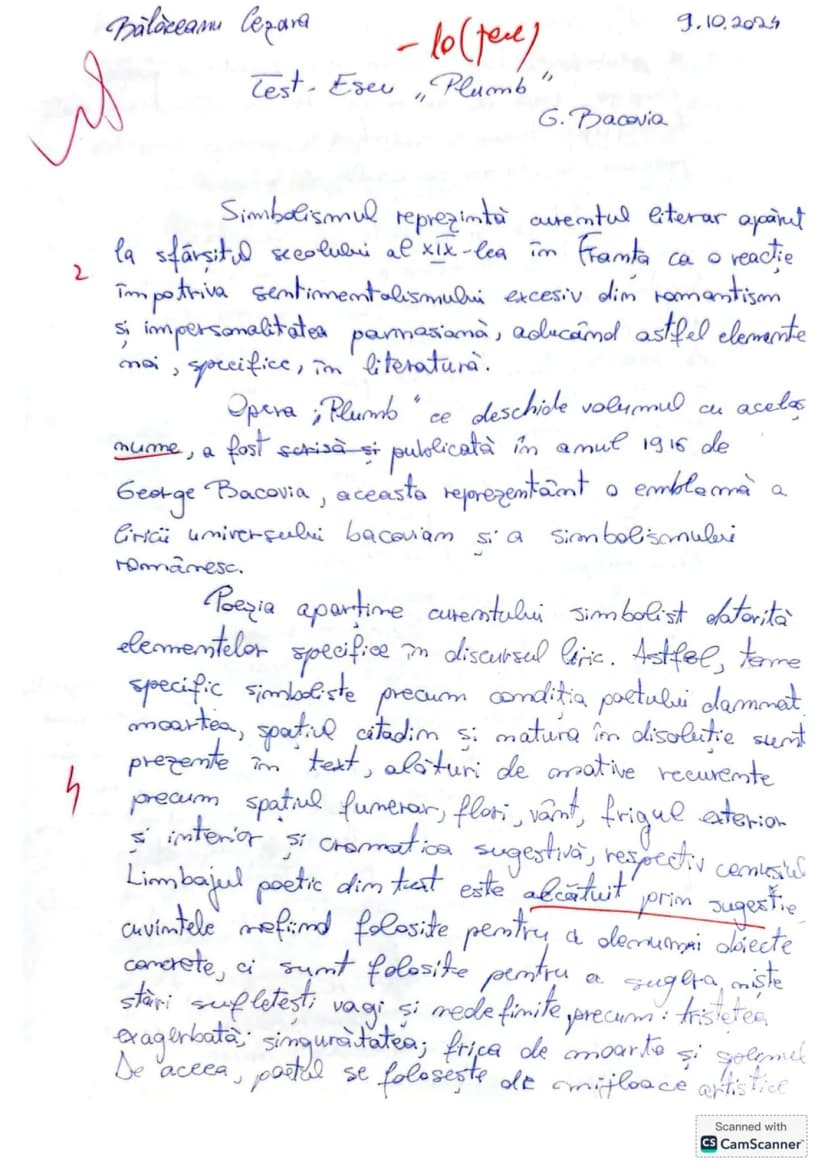 Bălăceanu Cezara 9.10.2024
- 10 (zece)
Test - Eseu „Plumb"
G. Bacovia
Simbolismul reprezintă curentul literar apărut
la sfârșitul secolului al XIX-lea în Franța ca o reacție
2
împotriva sentimentalismului excesiv din romantism
și impersonalitatea parnasiană, aducând astfel elemente
noi, specifice, în literatură.
Opera „Plumb" ce deschide volumul cu același
nume, a fost scrisă și publicată în anul 1916 de
George Bacovia, aceasta reprezentând o emblemă a
liricii universului bacovian și a simbolismului
românesc.
Poezia aparține curentului simbolist datorită
elementelor specifice în discursul liric. Astfel, teme
specific simboliste precum condiția poetului damnat,
moartea, spațiul citadin și natura în disoluție sunt
prezente în text, alături de motive recurente
4
precum spațiul funerar, flori, vânt, frigul exterior
și interior și cromatica sugestivă, respectiv cenușiul
Limbajul poetic din text este alcătuit prin sugestie
cuvintele nefiind folosite pentru a denumi obiecte
concrete, ci sunt folosite pentru a sugera niște
stări sufletești vagi și nedefinite precum: tristețea
exagerbată; singurătatea; frica de moarte și
De aceea, poetul se folosește de mijloace artistice
Scanned with
CS CamScanner